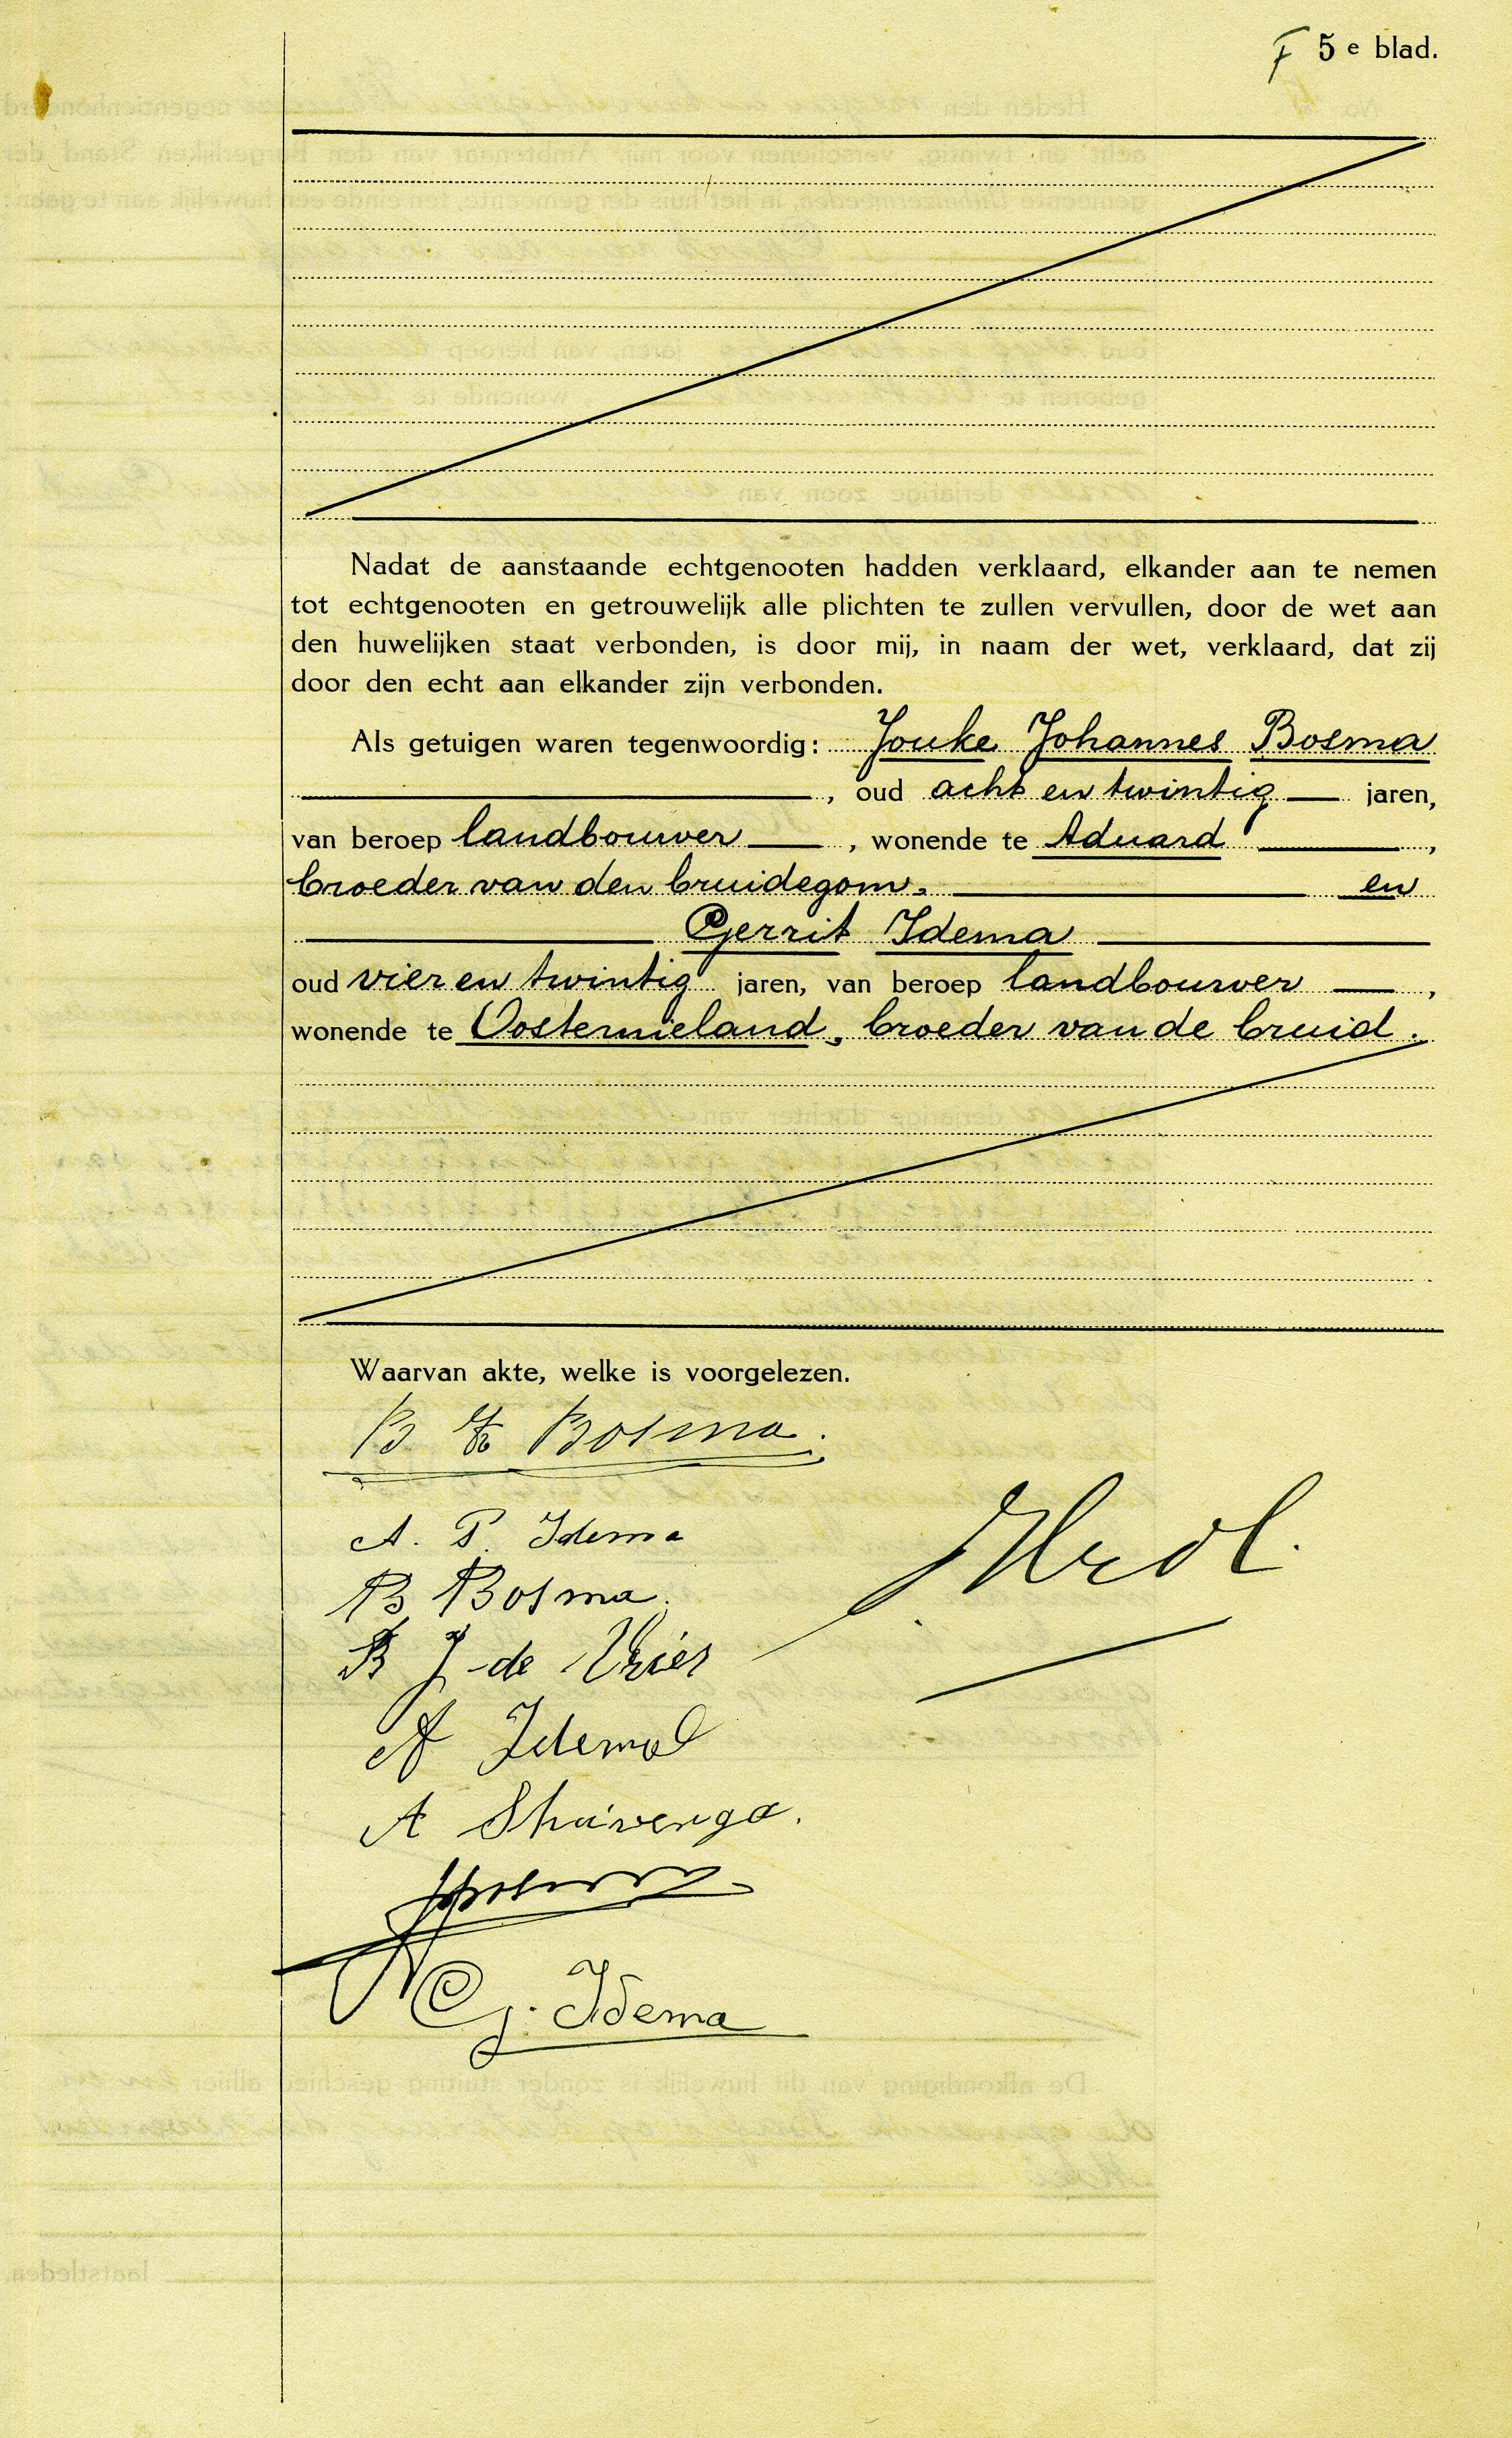 F 5e blad.
Nadat de aanstaande echtgenooten hadden verklaard, elkander aan te nemen
tot echtgenooten en getrouwelijk alle plichten te zullen vervullen, door de wet aan
den huwelijken staat verbonden, is door mij, in naam der wet, verklaard, dat zij
door den echt aan elkander zijn verbonden.
Als getuigen waren tegenwoordig: Jouke Johannes Bosma
, oud acht en twintig jaren,
van beroep landbouwer , wonende te Aduard ,
broeder van den bruidegom, en
Gerrit Idema
oud vier en twintig jaren, van beroep landbouwer ,
wonende te Oosternieland, broeder van de bruid.
Waarvan akte, welke is voorgelezen.
Bosma.
A. P. Idema
B Bosma.
B J de Vries
A Idema
A
G. Idema